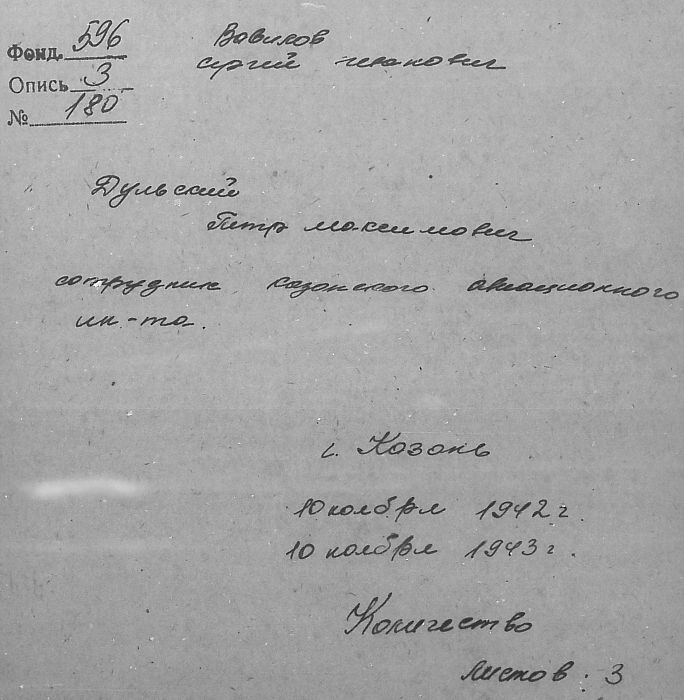 Фонд. 596
Опись 3
№ 180
Вавилов
Сергей Иванович
Дульский
Петр Максимович
сотрудник казанского авиационного
ин-та.
г. Казань
10 ноября 1942 г.
10 ноября 1943 г.
Количество
листов. 3